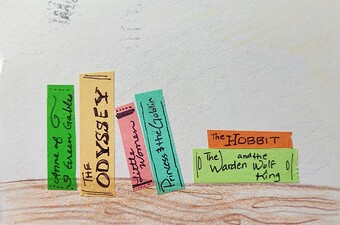 Anne of
Green Gables
THE
ODYSSEY
Little
Women
Princess & the Goblin
The HOBBIT
The and the
Warden Wolf
King